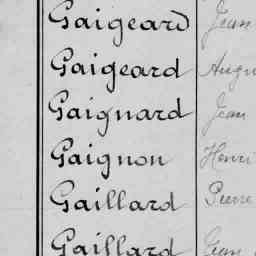 Gaigeard Jean
Gaigeard Augu
Gaignard Jean
Gaignon Henri
Gaillard Pierre
Gaillard Jean